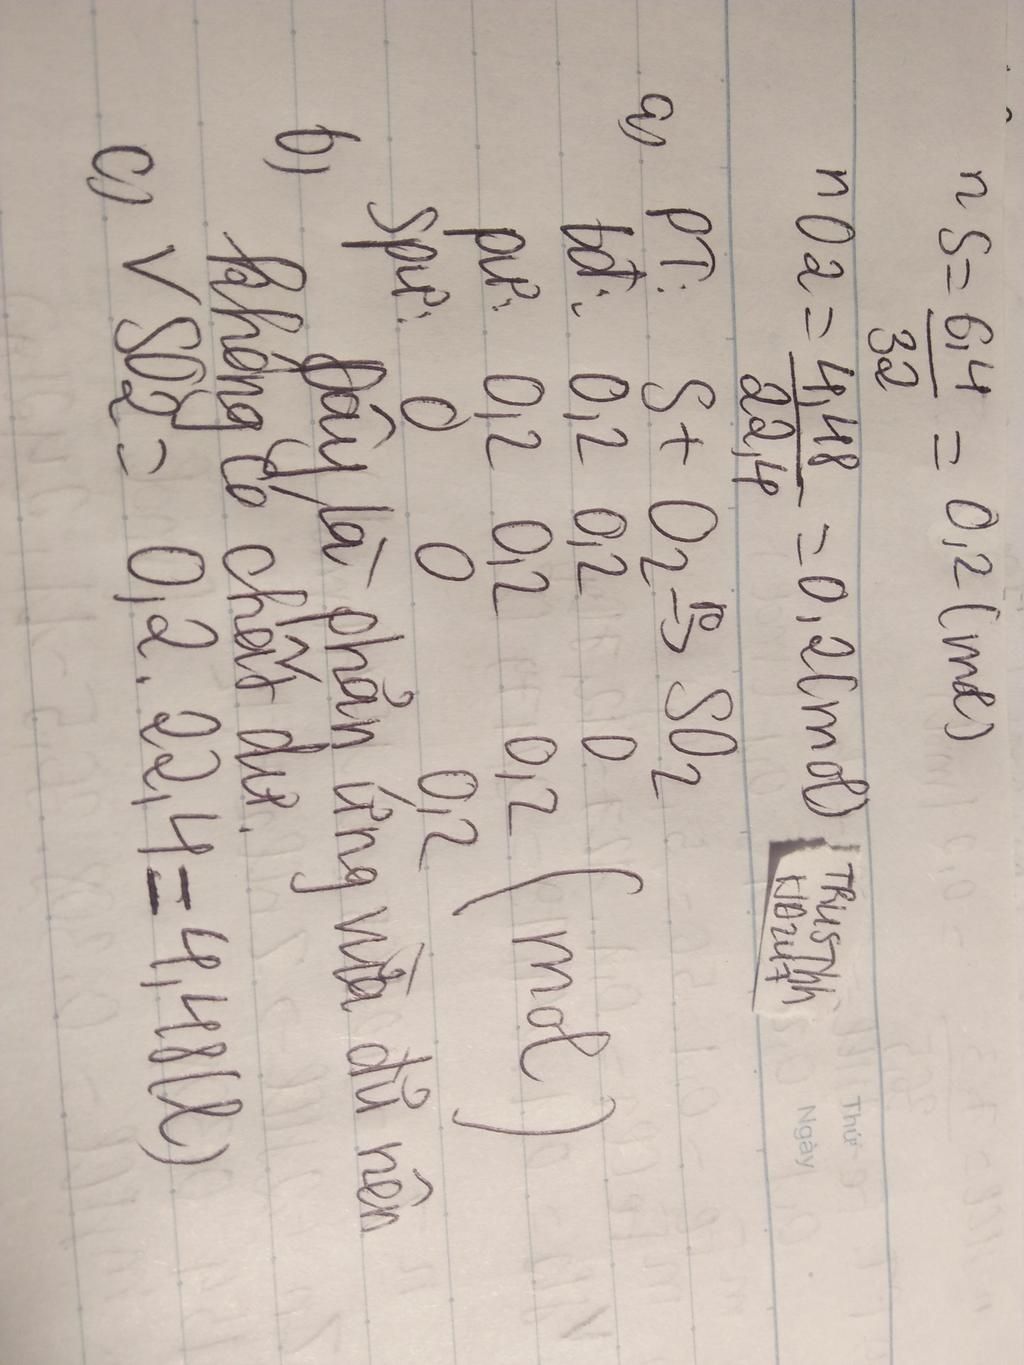 n S = 6,4 / 32 = 0,2 (mol)
n O2 = 4,48 / 22,4 = 0,2 (mol)
Thứ
Ngày
a) PT: S + O2 → SO2
bđ: 0,2 0,2 0
pư: 0,2 0,2 0,2 (mol)
spư: 0 0 0,2
b) Đây là phản ứng vừa đủ nên
không có chất dư.
c) V SO2 = 0,2 . 22,4 = 4,48 (l)